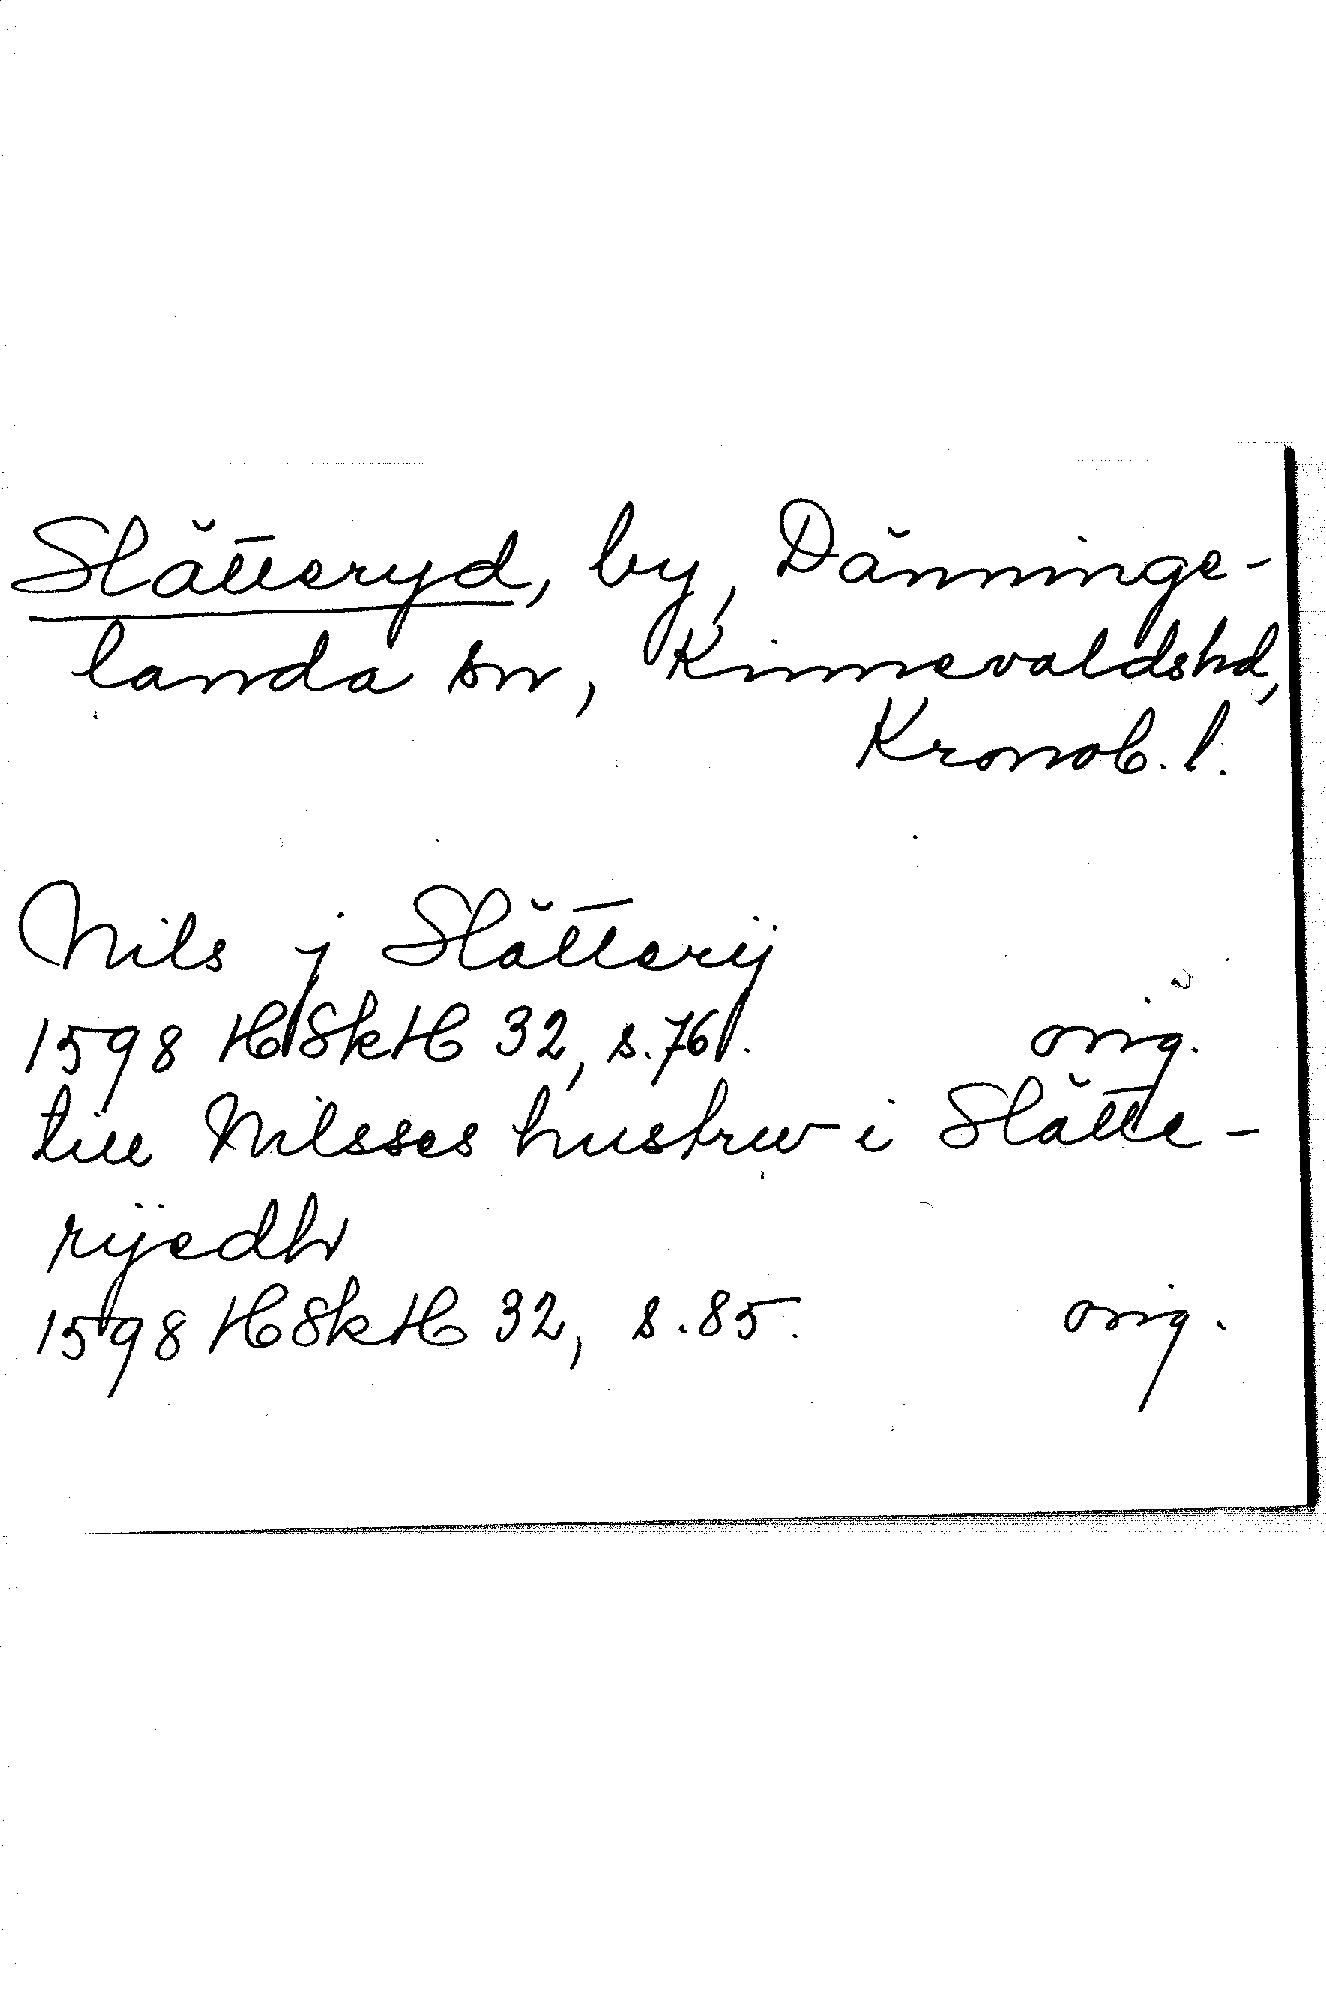 Slätteryd, by, Dänninge-
landa sn, Kinnevaldshd,
Kronob. l.
Nils j Slätterij
1598 HSkH 32, s. 76. orig.
till Nilsses hustrw i Slätte-
rÿedh
1598 HSkH 32, s. 85. orig.